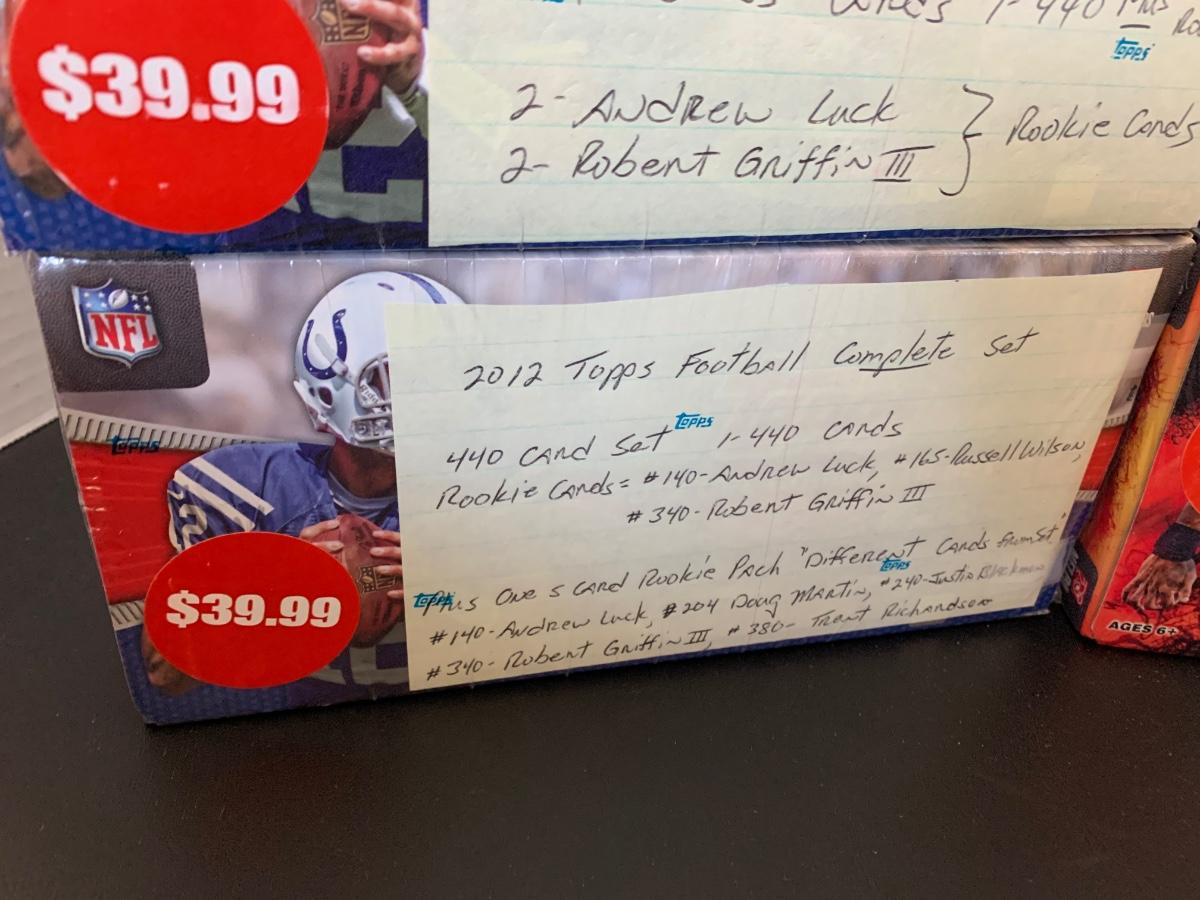 $39.99
1-440 Plus
TOPPS
2- Andrew Luck
2- Robert Griffin III
Rookie Cards
NFL
2012 Topps Football Complete Set
TOPPS
440 Card Set 1-440 Cards
Rookie Cards= #140-Andrew Luck, #165-Russell Wilson,
#340-Robert Griffin III
Plus One 5 Card Rookie Pack "Different Cards from Set"
TOPPS
TOPPS
#140-Andrew Luck, #204 Doug Martin, #240-Justin Blackmon
#340- Robert Griffin III, #380- Trent Richardson
TOPPS
$39.99
AGES 6+